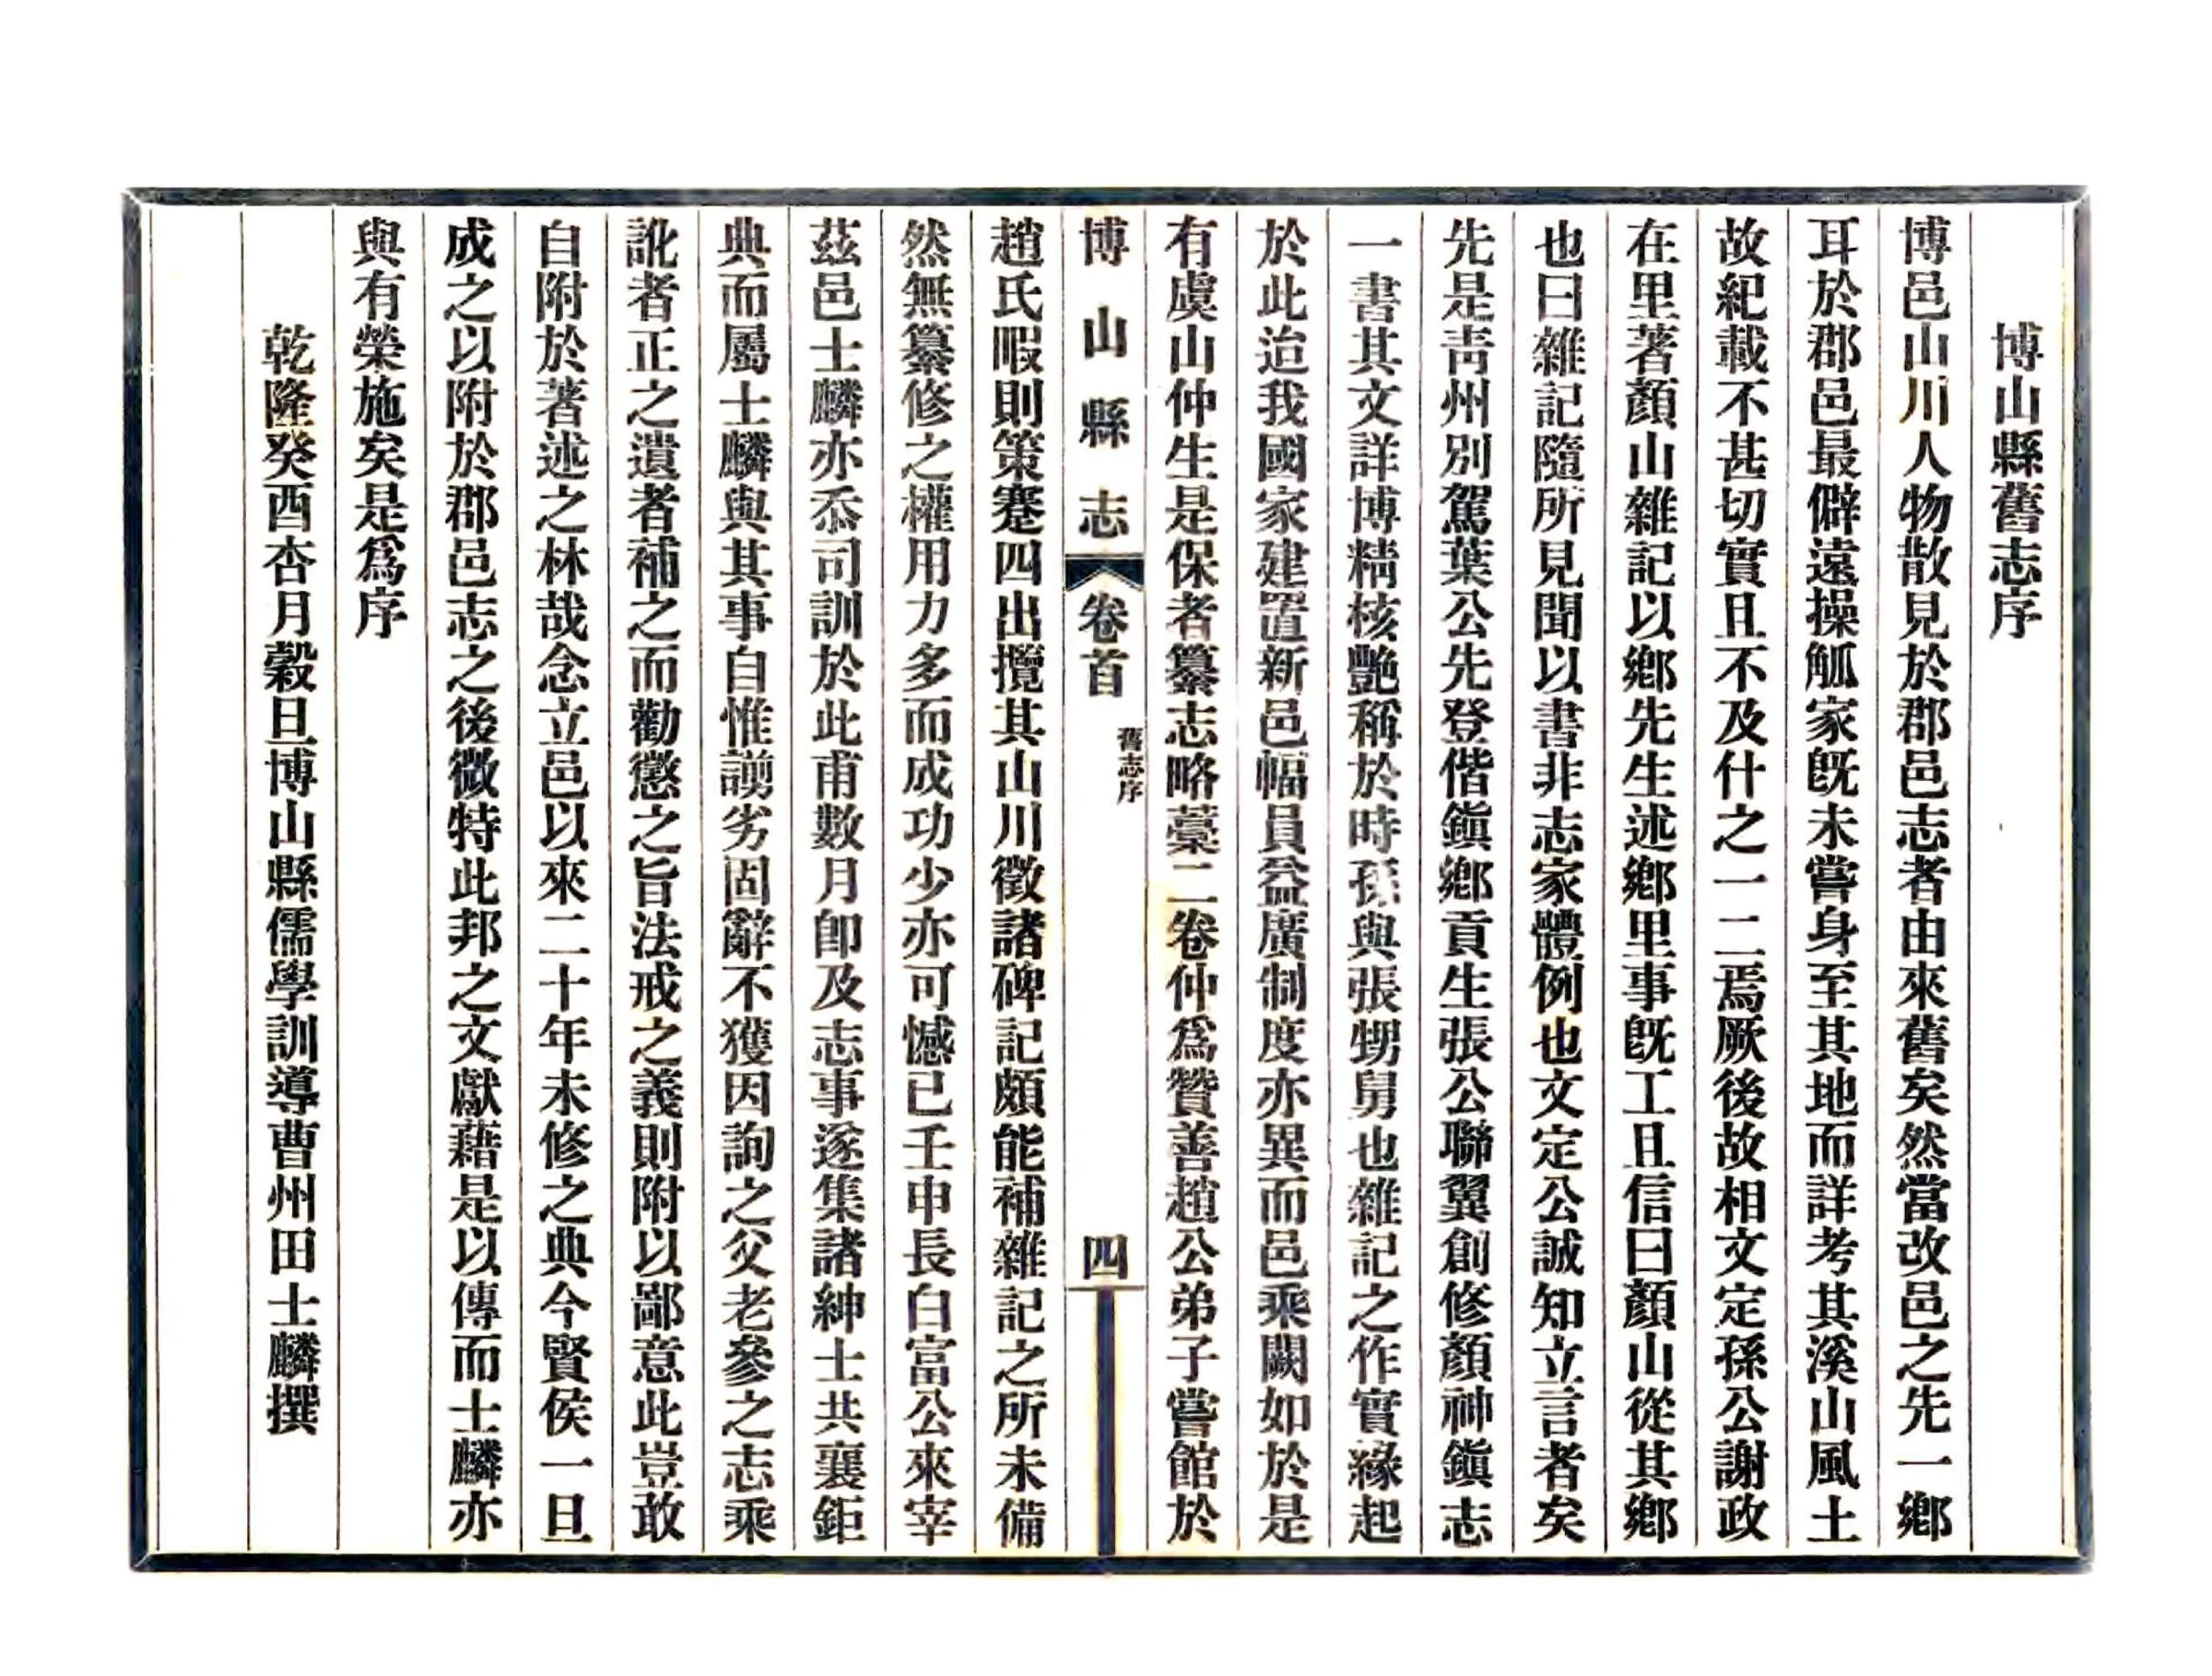 博山縣舊志序
博邑山川人物散見於郡邑志者由來舊矣然當改邑之先一鄉
耳於郡邑最僻遠操觚家既未嘗身至其地而詳考其溪山風土
故紀載不甚切實且不及什之一二焉厥後故相文定孫公謝政
在里著顏山雜記以鄉先生述鄉里事既工且信曰顏山從其鄉
也曰雜記隨所見聞以書非志家體例也文定公誠知立言者矣
先是靑州別駕葉公先登偕鎭鄉貢生張公聯翼創修顏神鎭志
一書其文詳博精核艶稱於時孫與張甥舅也雜記之作實緣起
於此迨我國家建置新邑幅員益廣制度亦異而邑乘闕如於是
有虞山仲生是保者纂志略藁二卷仲爲贊善趙公弟子嘗館於
博山縣志
卷首
舊志序
四
趙氏暇則策蹇四出攬其山川徵諸碑記頗能補雜記之所未備
然無纂修之權用力多而成功少亦可憾已壬申長白富公來宰
茲邑士麟亦忝司訓於此甫數月卽及志事遂集諸紳士共襄鉅
典而屬士麟與其事自惟譾劣固辭不獲因詢之父老參之志乘
訛者正之遺者補之而勸懲之旨法戒之義則附以鄙意此豈敢
自附於著述之林哉念立邑以來二十年未修之典今賢侯一旦
成之以附於郡邑志之後微特此邦之文獻藉是以傳而士麟亦
與有榮施矣是爲序
乾隆癸酉杏月穀旦博山縣儒學訓導曹州田士麟撰